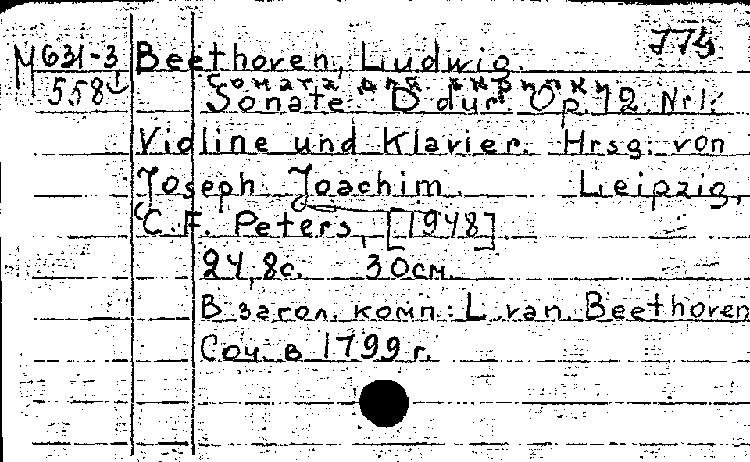 М 631-3 Beethoven, Ludwig.
558
Соната для скрипки
Sonate D dur Op. 12 Nr 1.
Violine und Klavier. Hrsg. von
Joseph Joachim. Leipzig,
C. F. Peters, [1948]
24, 8с. 30см.
В загол. комп: L. van Beethoven
Соч. в 1799 г.